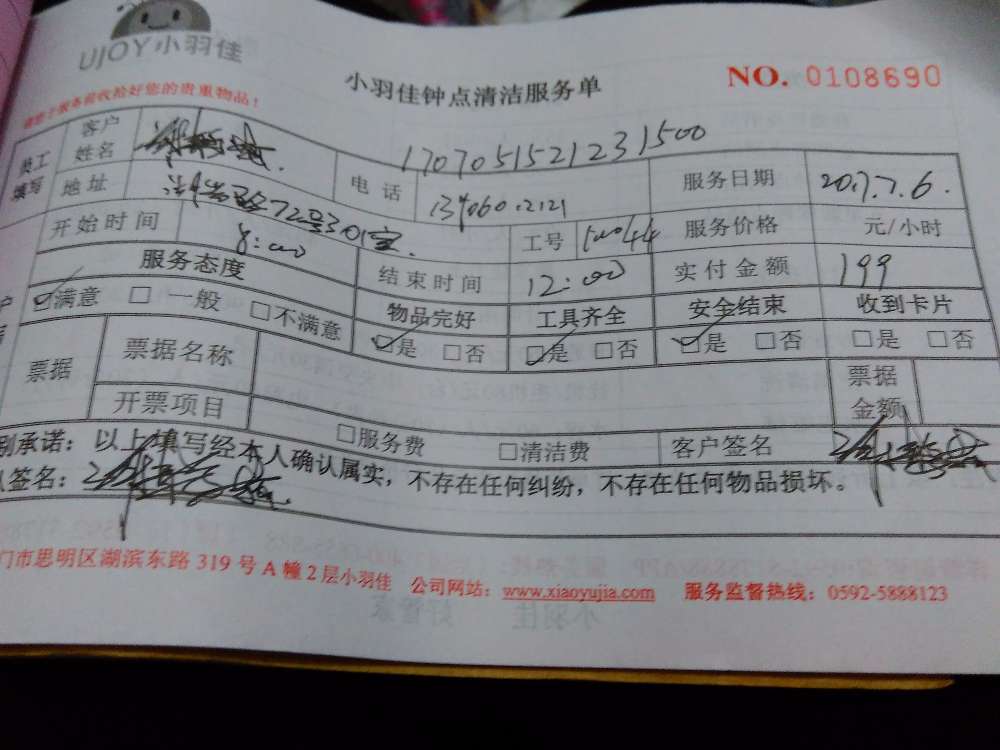 UJOY小羽佳
小羽佳钟点清洁服务单 NO. 0108690
贵重物品!
员工填写 客户姓名 1707051521231500
地址 72号301室. 电话 服务日期 2017.7.6.
开始时间 8:00 工号 服务价格 元/小时
服务态度 结束时间 12:00 实付金额 199
满意 □一般 □不满意 物品完好 工具齐全 安全结束 收到卡片
是 □否 是 □否 是 □否 □是 □否
票据 票据名称 票据金额
开票项目 □服务费 □清洁费 客户签名
承诺：以上填写经本人确认属实，不存在任何纠纷，不存在任何物品损坏。
签名：
门市思明区湖滨东路 319 号 A 幢 2 层小羽佳 公司网站：www.xiaoyujia.com 服务监督热线：0592-5888123